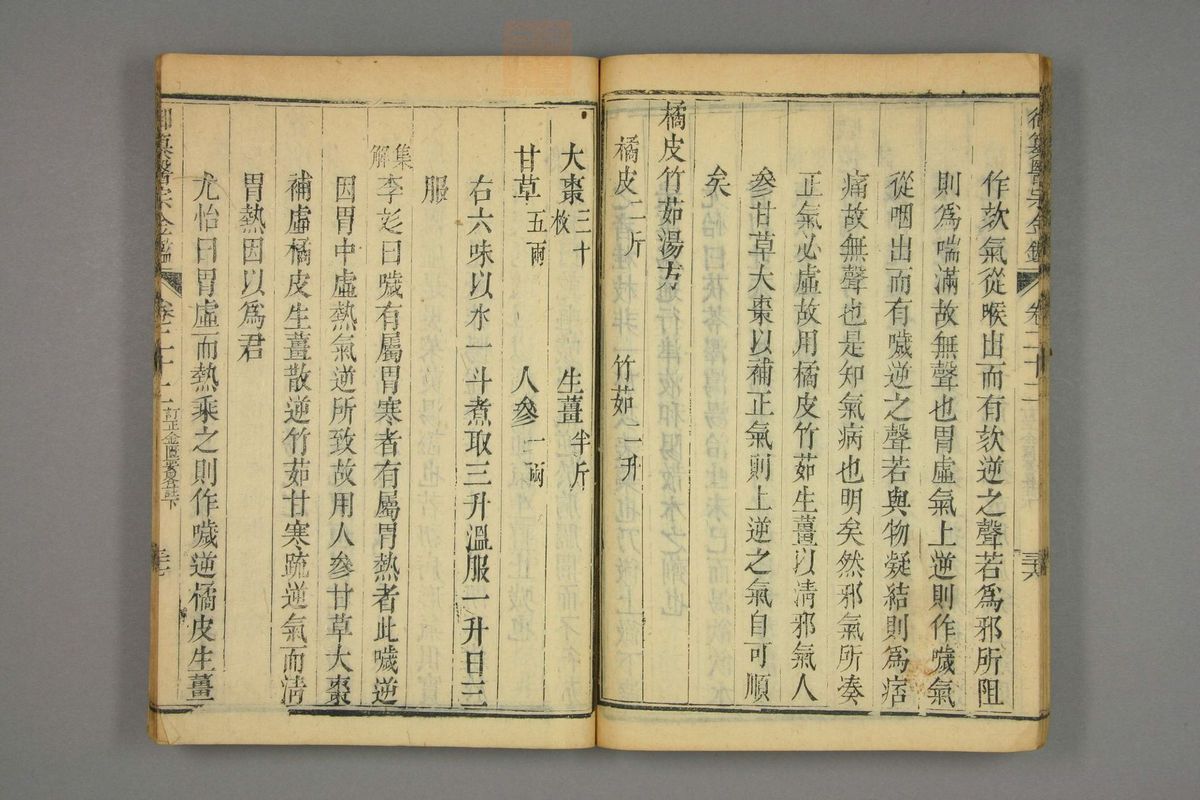 御纂醫宗金鑑 卷二十二
作欬氣從喉出而有欬逆之聲若為邪所阻
則為喘滿故無聲也胃虛氣上逆則作噦氣
從咽出而有噦逆之聲若與物凝結則為痞
痛故無聲也是知氣病也明矣然邪氣所湊
正氣必虛故用橘皮竹茹生薑以淸邪氣人
參甘草大棗以補正氣則上逆之氣自可順
矣
橘皮竹茹湯方
橘皮二斤 竹茹二升
大棗三十枚 生薑半斤
甘草五兩 人參一兩
右六味以水一斗煮取三升溫服一升日三
服
集解李彣曰噦有屬胃寒者有屬胃熱者此噦逆
因胃中虛熱氣逆所致故用人參甘草大棗
補虛橘皮生薑散逆竹茹甘寒疏逆氣而淸
胃熱因以為君
尤怡曰胃虛而熱乘之則作噦逆橘皮生薑
御纂醫宗金鑑 卷二十二 訂正金匱要畧註下